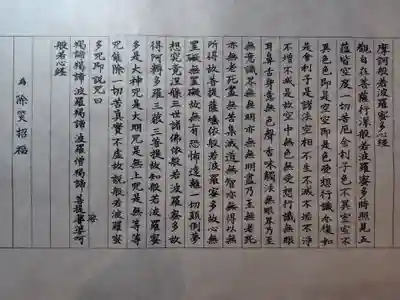 摩訶般若波羅蜜多心経
觀自在菩薩行深般若波羅蜜多時照見五
蘊皆空度一切苦厄舎利子色不異空空不
異色色即是空空即是色受想行識亦復如
是舎利子是諸法空相不生不滅不垢不淨
不增不減是故空中無色無受想行識無眼
耳鼻舌身意無色聲香味觸法無眼界乃至
無意識界無無明亦無無明盡乃至無老死
亦無老死盡無苦集滅道無智亦無得以無
所得故菩提薩埵依般若波羅蜜多故心無
罣礙無罣礙故無有恐怖遠離一切顛倒夢
想究竟涅槃三世諸佛依般若波羅蜜多故
得阿耨多羅三藐三菩提故知般若波羅蜜
多是大神咒是大明咒是無上咒是無等等
咒能除一切苦真實不虛故說般若波羅蜜
多咒即說咒曰
羯諦羯諦 波羅羯諦 波羅僧羯諦 菩提薩婆訶
般若心経
為 除災招福